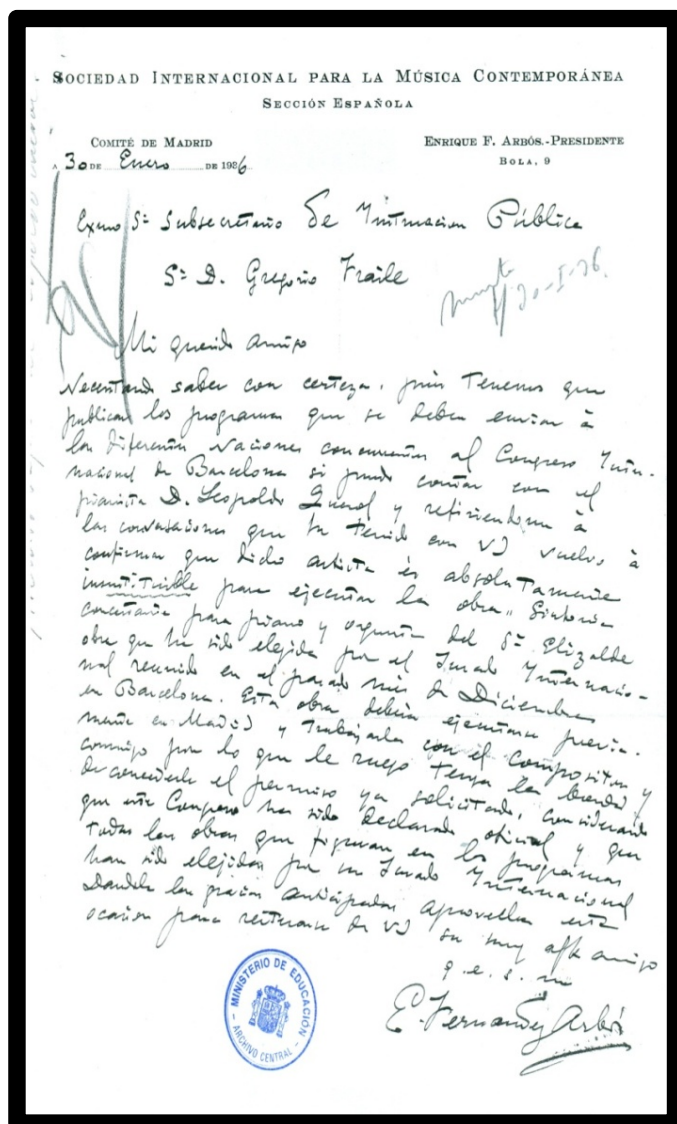 SOCIEDAD INTERNACIONAL PARA LA MÚSICA CONTEMPORÁNEA
SECCIÓN ESPAÑOLA
COMITÉ DE MADRID
ENRIQUE F. ARBÓS.-PRESIDENTE
BOLA, 9
A 30 DE Enero DE 1936
Exmo Sr Subsecretario de Instrucción Pública
Sr D. Gregorio Fraile
30-I-36.
Mi querido amigo
Necesitando saber con certeza, pués tenemos que
publicar los programas que se deben enviar à
las diferentes Naciones concurrentes al Congreso Inter-
nacional de Barcelona si puedo contar con el
pianista D. Leopoldo Querol y refiriendome à
las conversaciones que he tenido con VD vuelvo à
confirmar que dicho artista és absolutamente
insustituible para ejecutar la obra "Sinfonia
concertante para piano y orquesta del Sr Elizalde
obra que ha sido elegida por el Jurado Internacio-
nal reunido en el pasado més de Diciembre
en Barcelona. Esta obra deberia ejecutarse previa-
mente en Madrid y trabajarla con el compositor y
conmigo por lo que le ruego tenga la bondad
de concederle el permiso ya solicitado, considerando
que este Congreso ha sido declarado oficial y que
todas las obras que figuran en los programas
han sido elejidas por un Jurado Internacional
Dandole las gracias anticipadas aprovecha esta
ocasion para reiterarse de VD
su muy afto amigo
q. e. s. m
E. Fernandez Arbós
MINISTERIO DE EDUCACIÓN
ARCHIVO CENTRAL